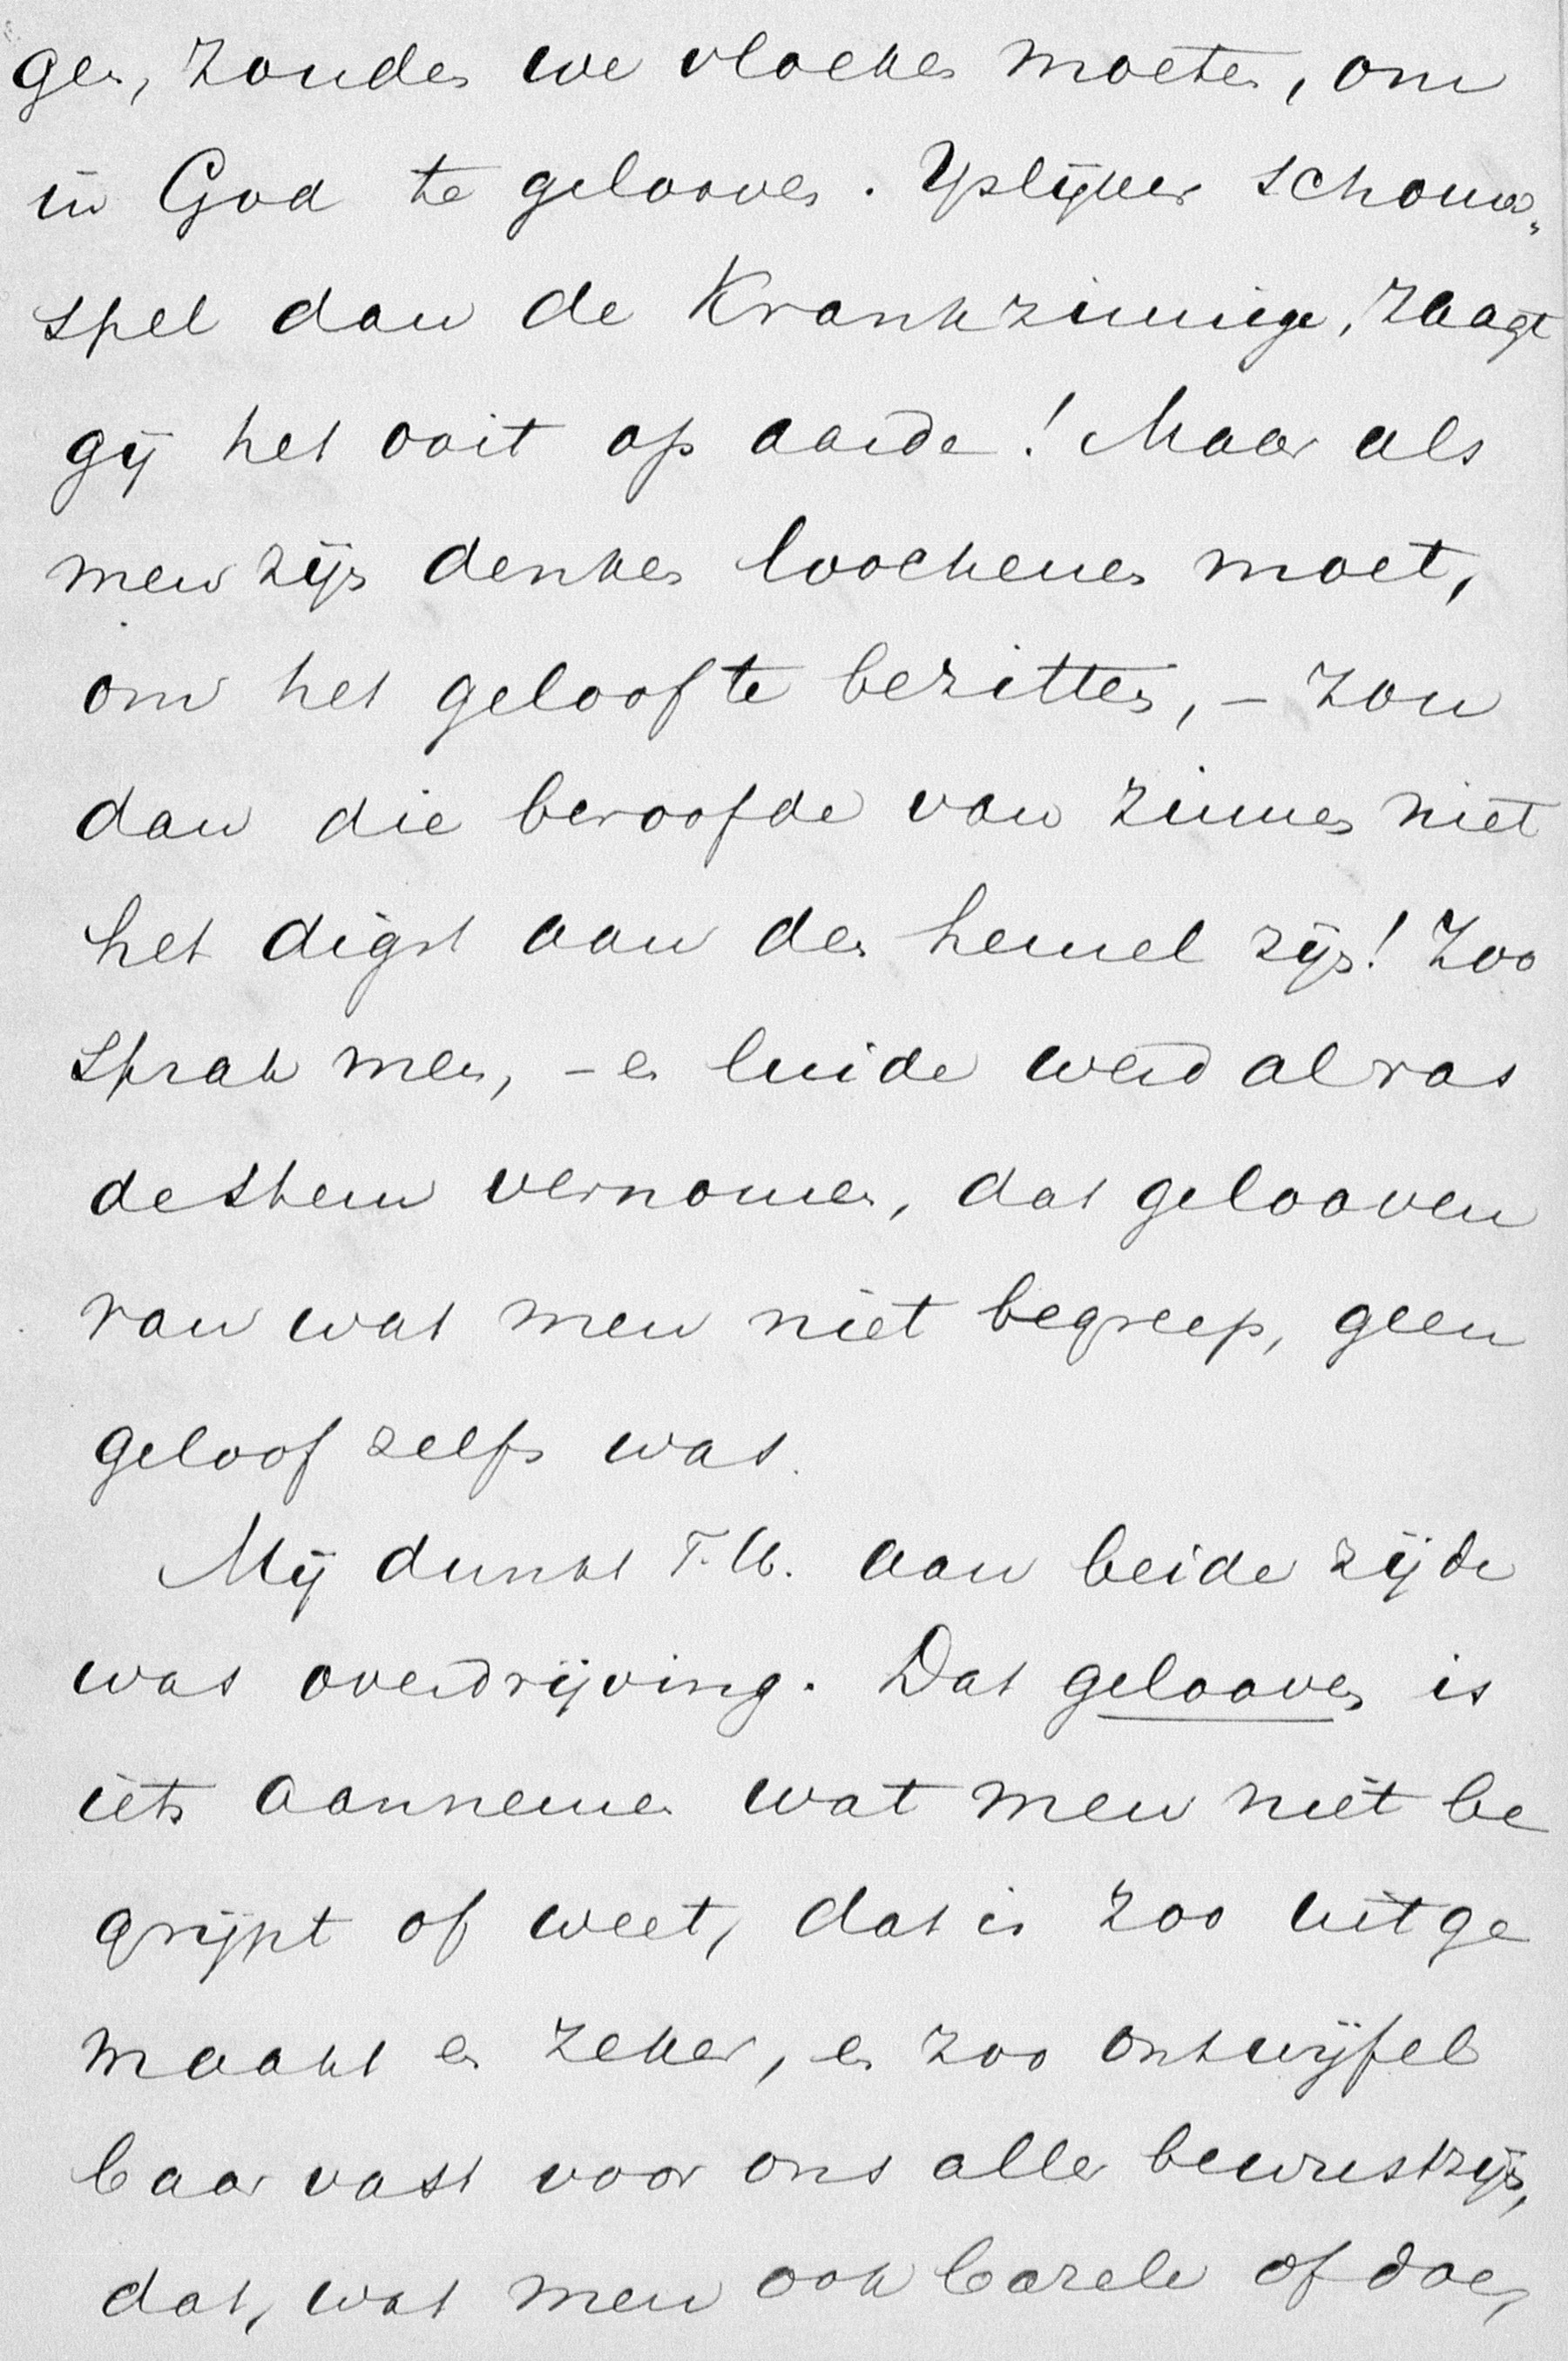 gen, zouden we vloeken moeten, om
in God te gelooven. Yslijker schouw„
spel dan de Krankzinnige, zaagt
gij het ooit op aarde! Maar als
men zijn denken loochenen moet,
om het geloof te bezitten, – zou
dan die beroofde van zinnen niet
het digst aan den hemel zijn! Zoo
sprak men, – en luide werd alras
de stem vernomen, dat gelooven
van wat men niet begreep, geen
geloof zelfs was.
Mij dunkt T. U. aan beide zijde
was overdrijving. Dat gelooven is
iets aannemen wat men niet be
grijpt of weet, dat is zoo uitge
maakt en zeker, en zoo ontwijfel
baar vast voor ons aller bewustzijn,
dat, wat men ook bazele of doe,